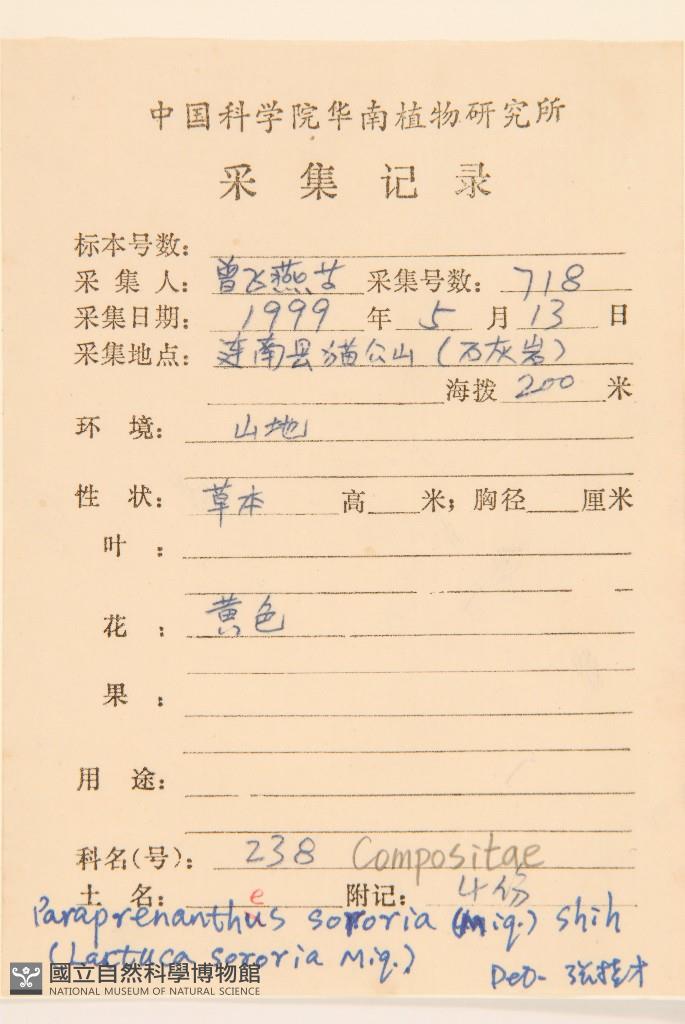 中国科学院华南植物研究所
采集记录
标本号数：
采集人：曾飞燕等 采集号数：718
采集日期：1999 年 5 月 13 日
采集地点：连南县猫公山（石灰岩）
海拨 200 米
环境：山地
性状：草本 高 米；胸径 厘米
叶：
花：黄色
果：
用途：
科名(号)：238 Compositae
土名： 附记：4份
e
Paraprenanthus sororia (Miq.) Shih
(Lactuca sororia Miq.)
Det. 张桂才
國立自然科學博物館
NATIONAL MUSEUM OF NATURAL SCIENCE